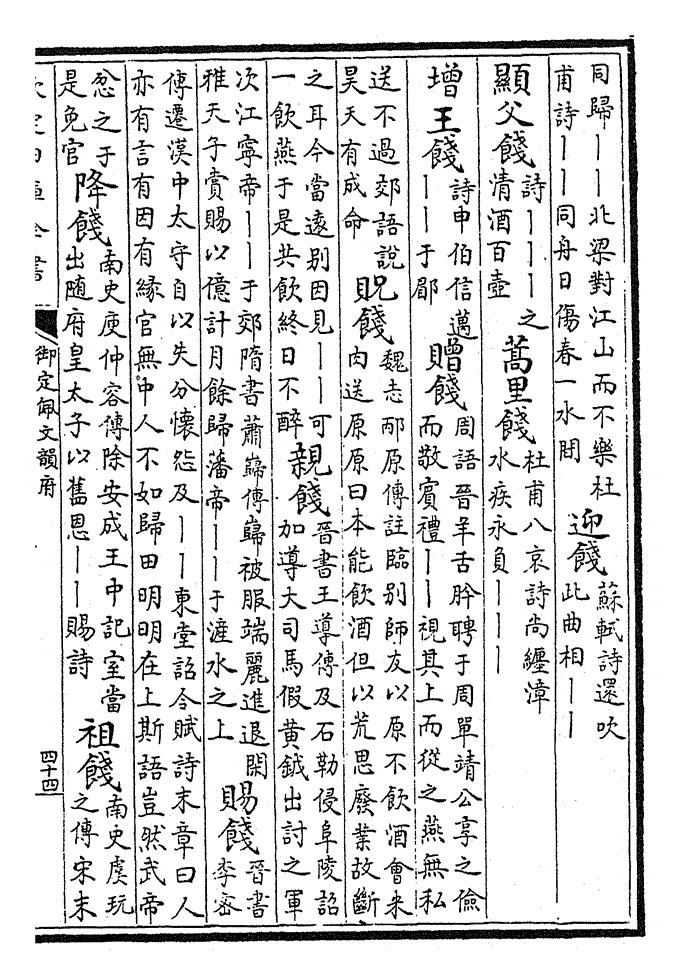 同歸丨丨北梁對江山而不樂杜
甫詩丨丨同舟日傷春一水間
迎餞
蘇軾詩還吹
此曲相丨丨
顯父餞
詩丨丨丨之
清酒百壺
蒿里餞
杜甫八哀詩尚纏漳
水疾永負丨丨丨
增王餞
詩申伯信邁
丨丨于郿
贈餞
周語晉羊舌肸聘于周單靖公享之儉
而敬賓禮丨丨視其上而從之燕無私
送不過郊語說
昊天有成命
貺餞
魏志邴原傳註臨別師友以原不飲酒會米
肉送原原曰本能飲酒但以荒思廢業故斷
之耳今當遠別因見丨丨可
一飲燕于是共飲終日不醉
親餞
晉書王導傳及石勒侵阜陵詔
加導大司馬假黃鉞出討之軍
次江寧帝丨丨于郊隋書蕭巋傳巋被服端麗進退閑
雅天子賞賜以億計月餘歸藩帝丨丨于滻水之上
賜餞
晉書
李密
傳遷漢中太守自以失分懷怨及丨丨東堂詔令賦詩末章曰人
亦有言有因有緣官無中人不如歸田明明在上斯語豈然武帝
忿之于
是免官
降餞
南史庾仲容傳除安成王中記室當
出隨府皇太子以舊恩丨丨賜詩
祖餞
南史虞玩
之傳宋末
欽定四庫全書
御定佩文韻府
四十四